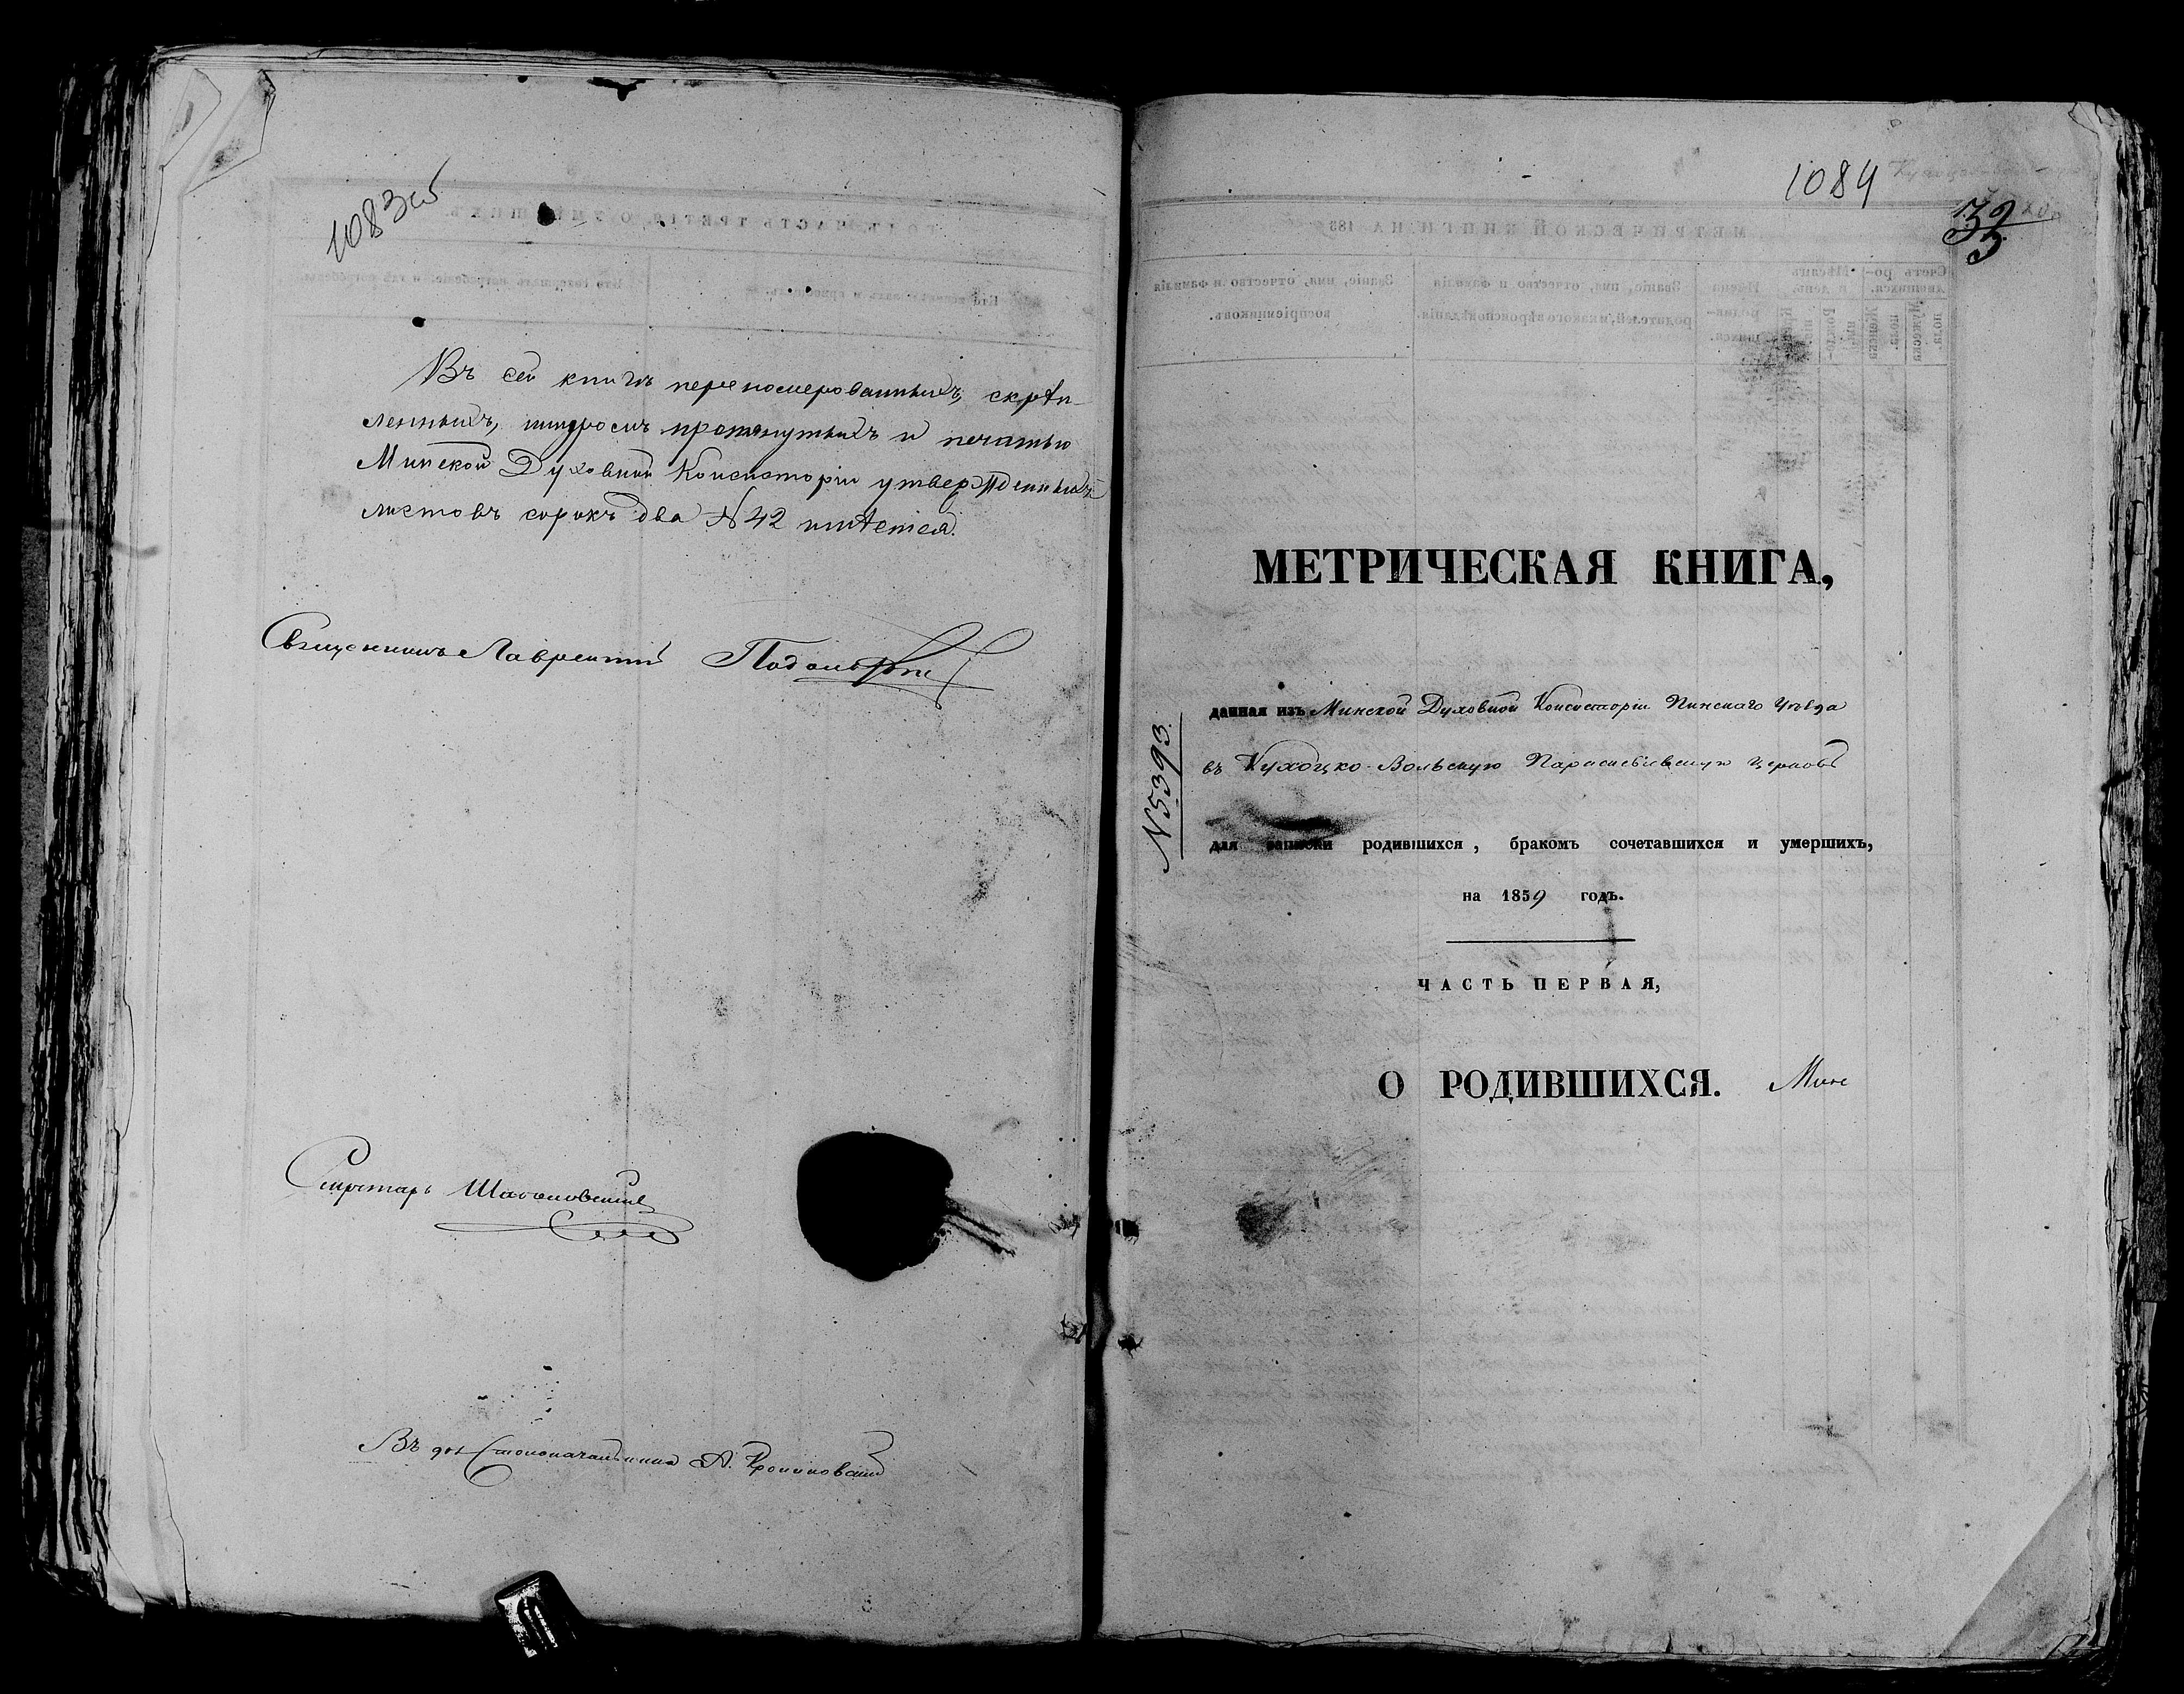 1083об
Въ сей книгѣ перенумерованныхъ, скрѣп-
ленныхъ, шнуромъ протянутыхъ и печатью
Минской Духовной Консисторіи утвержденныхъ
листовъ сорокъ два N 42 имѣется.
Священникъ Лаврентій
Секретарь
Въ дол. Столоначальника А.
1084
33
МЕТРИЧЕСКАЯ КНИГА,
данная изъ Минской Духовной Консисторіи Пинскаго Уѣзда
въ Кухоцко-Вольскую Параскевіевскую церковь
N 5393.
для записки родившихся, бракомъ сочетавшихся и умершихъ,
на 1859 годъ.
ЧАСТЬ ПЕРВАЯ,
О РОДИВШИХСЯ. Мин